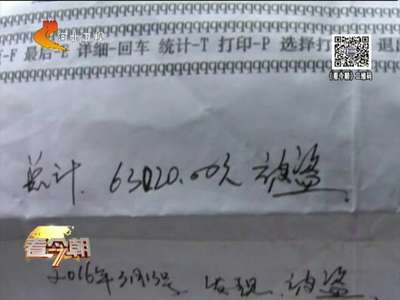 河北卫视
-F 最后-E 详细-回车 统计-T 打印-P 选择打 退出
《看今朝》二维码
总计. 63020.00元 被盗
看今朝
2016年3月13号 发现 被盗